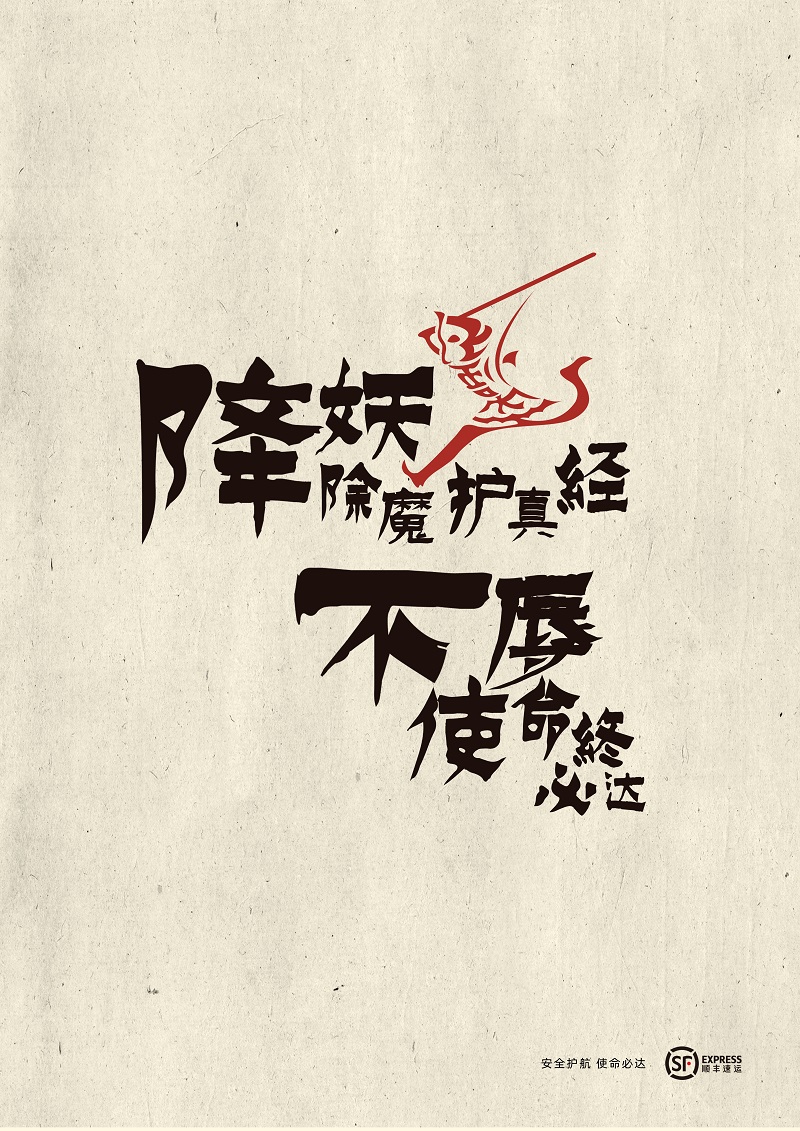 降妖
除魔护真経
不辱
使命終
必达
安全护航 使命必达
SF EXPRESS
顺丰速运